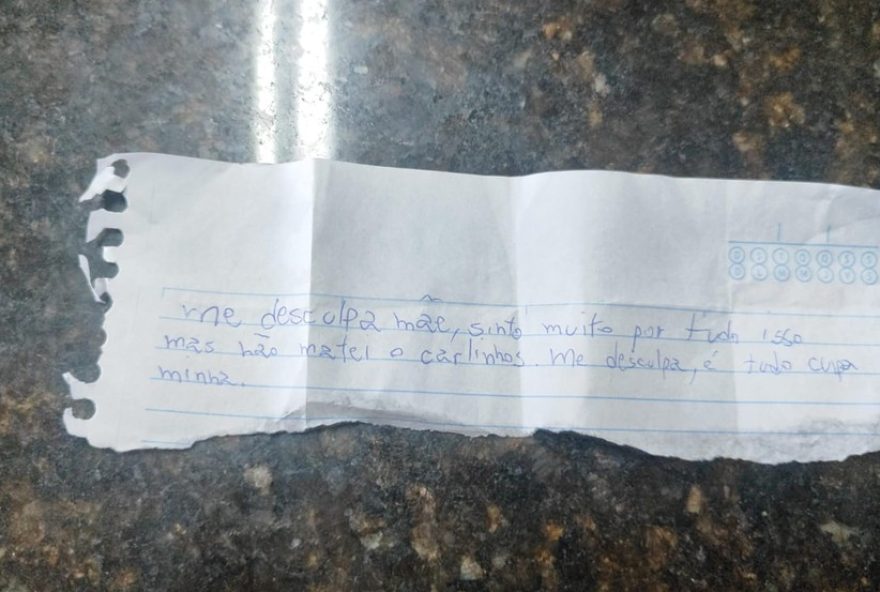 me desculpa mãe, sinto muito por tudo isso
mas não matei o carlinhos. Me desculpa, é tudo culpa
minha.